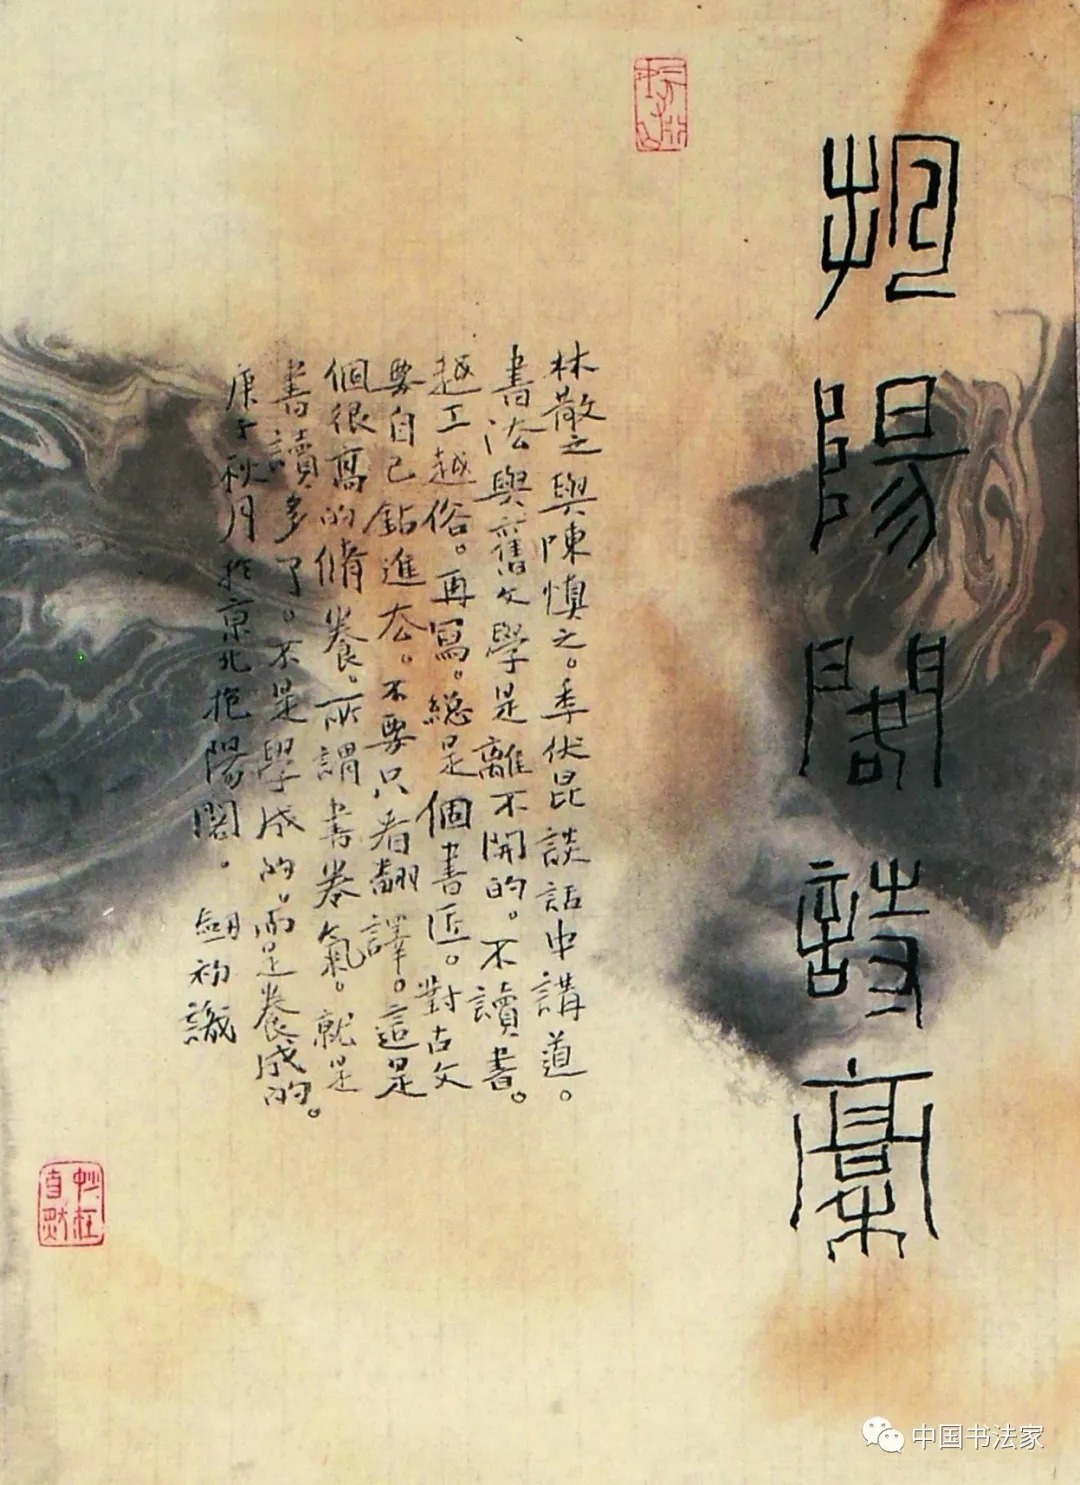 抱陽閣詩稾
林散之與陳慎之。季伏昆談話中講道。
書法與舊文學是離不開的。不讀書。
越工越俗。再寫。總是個書匠。對古文
要自己鈷進去。不要只看翻譯。這是
個很高的脩養。所謂書卷氣。就是
書讀多了。不是學成的。而是養成的。
庚子秋月於京北抱陽閣。劍初識
妙在自然
中国书法家